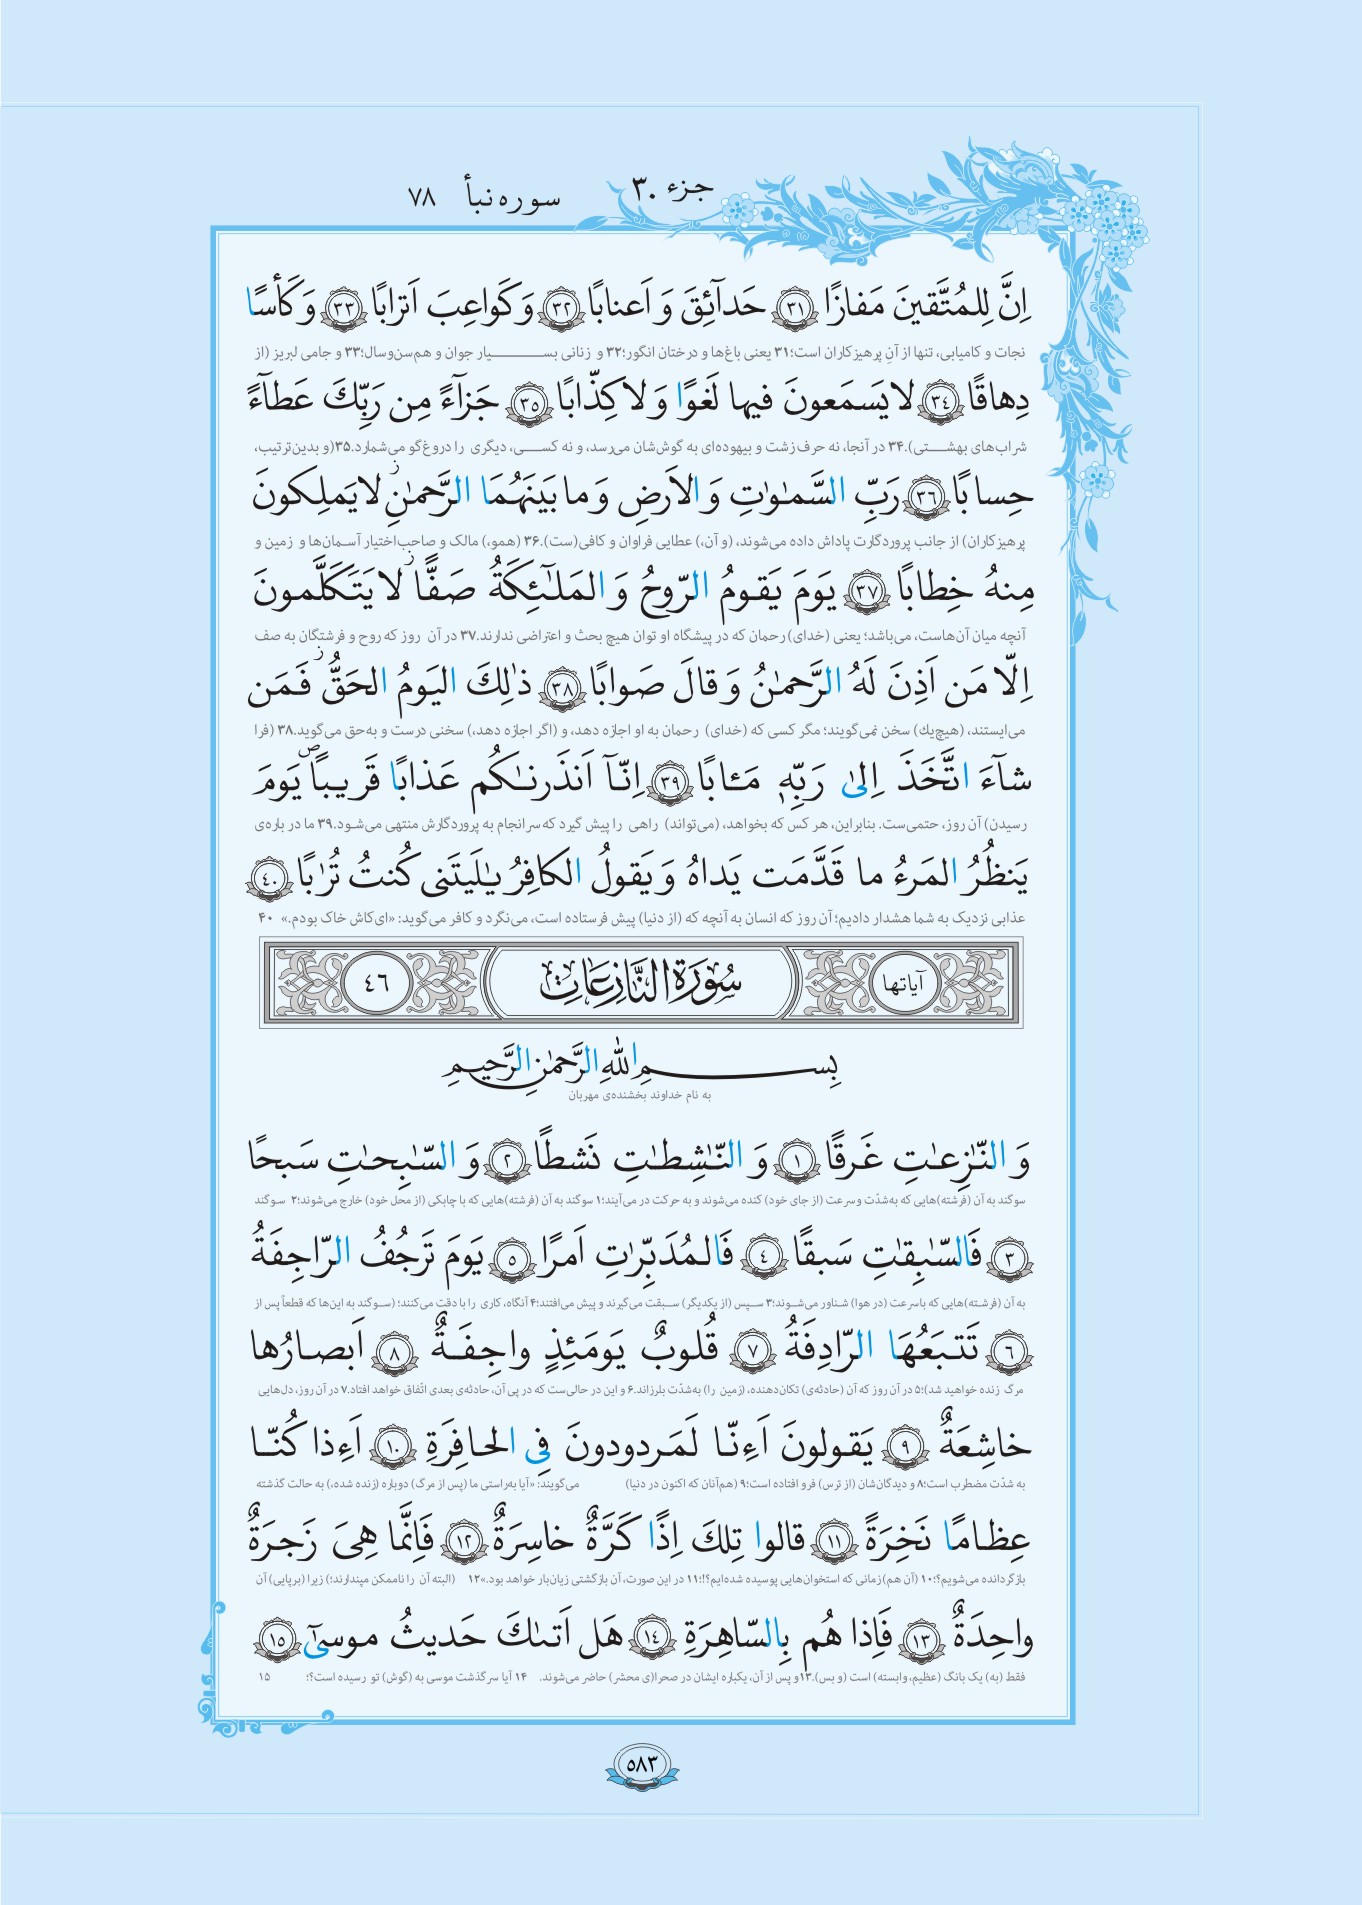 جزء ۳۰ سوره نبأ ۷۸
اِنَّ لِلمُتَّقینَ مَفازًا ﴿٣١﴾ حَدآئِقَ وَ اَعنابًا ﴿٣٢﴾ وَ کَواعِبَ اَترابًا ﴿٣٣﴾ وَ کَأسًا
نجات و کامیابی، تنها از آنِ پرهیزکاران است؛۳۱ یعنی باغ‌ها و درختان انگور؛۳۲ و زنانی بسیار جوان و هم‌سن‌وسال؛۳۳ و جامی لبریز (از
دِهاقًا ﴿٣٤﴾ لا یَسمَعونَ فیها لَغوًا وَ لا کِذّابًا ﴿٣٥﴾ جَزآءً مِن رَبِّكَ عَطآءً
شراب‌های بهشتی).۳۴ در آنجا، نه حرف زشت و بیهوده‌ای به گوش‌شان می‌رسد، و نه کسی، دیگری را دروغ‌گو می‌شمارد.۳۵(و بدین‌ترتیب،
حِسابًا ﴿٣٦﴾ رَبِّ السَّمٰوٰتِ وَ الاَرضِ وَ ما بَینَهُمَا الرَّحمٰنِ ز لا یَملِکونَ
پرهیزکاران) از جانب پروردگارت پاداش داده می‌شوند، (و آن،) عطایی فراوان و کافی(ست).۳۶ (همو،) مالک و صاحب‌اختیار آسمان‌ها و زمین و
مِنهُ خِطابًا ﴿٣٧﴾ یَومَ یَقومُ الرّوحُ وَ المَلٰٓئِکَةُ صَفًّا ز لا یَتَکَلَّمونَ
آنچه میان آن‌هاست، می‌باشد؛ یعنی (خدای) رحمان که در پیشگاه او توان هیچ بحث و اعتراضی ندارند.۳۷ در آن روز که روح و فرشتگان به صف
اِلّا مَن اَذِنَ لَهُ الرَّحمٰنُ وَ قالَ صَوابًا ﴿٣٨﴾ ذٰلِكَ الیَومُ الحَقُّ ز فَمَن
می‌ایستند، (هیچ‌یك) سخن نمی‌گویند؛ مگر کسی که (خدای) رحمان به او اجازه دهد، و (اگر اجازه دهد،) سخنی درست و به‌حق می‌گوید.۳۸ (فرا
شآءَ اتَّخَذَ اِلیٰ رَبِّهٖ مَئابًا ﴿٣٩﴾ اِنّآ اَنذَرنٰکُم عَذابًا قَریبًا ص یَومَ
رسیدن) آن روز، حتمی‌ست. بنابراین، هر کس که بخواهد، (می‌تواند) راهی را پیش گیرد که سرانجام به پروردگارش منتهی می‌شود.۳۹ ما در باره‌ی
یَنظُرُ المَرءُ ما قَدَّمَت یَداهُ وَ یَقولُ الکافِرُ یٰلَیتَنی کُنتُ تُرٰبًا ﴿٤٠﴾
عذابی نزدیک به شما هشدار دادیم؛ آن روز که انسان به آنچه که (از دنیا) پیش فرستاده است، می‌نگرد و کافر می‌گوید: «ای‌کاش خاک بودم.» ۴۰
آیاتها سُورَةُ النَّازِعَاتِ ٤٦
بِسمِ اللّٰهِ الرَّحمٰنِ الرَّحیمِ
به نام خداوند بخشنده‌ی مهربان
وَ النّٰزِعٰتِ غَرقًا ﴿١﴾ وَ النّٰشِطٰتِ نَشطًا ﴿٢﴾ وَ السّٰبِحٰتِ سَبحًا
سوگند به آن (فرشته)هایی که به‌شدّت و سرعت (از جای خود) کنده می‌شوند و به حرکت در می‌آیند؛۱ سوگند به آن (فرشته)هایی که با چابکی (از محل خود) خارج می‌شوند؛۲ سوگند
﴿٣﴾ فَالسّٰبِقٰتِ سَبقًا ﴿٤﴾ فَالمُدَبِّرٰتِ اَمرًا ﴿٥﴾ یَومَ تَرجُفُ الرّاجِفَةُ
به آن (فرشته)هایی که باسرعت (در هوا) شناور می‌شوند؛۳ سپس (از یکدیگر) سبقت می‌گیرند و پیش می‌افتند؛۴ آنگاه، کاری را با دقت می‌کنند؛ (سوگند به این‌ها که قطعاً پس از
﴿٦﴾ تَتبَعُهَا الرّادِفَةُ ﴿٧﴾ قُلوبٌ یَومَئِذٍ واجِفَةٌ ﴿٨﴾ اَبصارُها
مرگ زنده خواهید شد)؛۵ در آن روز که آن (حادثه‌ی) تکان‌دهنده، (زمین را) به‌شدّت بلرزاند.۶ و این در حالی‌ست که در پی آن، حادثه‌ی بعدی اتّفاق خواهد افتاد.۷ در آن روز، دل‌هایی
خاشِعَةٌ ﴿٩﴾ یَقولونَ اَءِنّا لَمَردودونَ فِی الحافِرَةِ ﴿١٠﴾ اَءِذا کُنّا
به شدّت مضطرب است؛۸ و دیدگان‌شان (از ترس) فرو افتاده است؛۹ (هم‌آنان که اکنون در دنیا) می‌گویند: «آیا به‌راستی ما (پس از مرگ) دوباره (زنده شده،) به حالت گذشته
عِظامًا نَخِرَةً ﴿١١﴾ قالوا تِلكَ اِذًا کَرَّةٌ خاسِرَةٌ ﴿١٢﴾ فَاِنَّما هِیَ زَجرَةٌ
بازگردانده می‌شویم؟؛۱۰ (آن هم) زمانی که استخوان‌هایی پوسیده شده‌ایم؟!؛۱۱ در این صورت، آن بازگشتی زیان‌بار خواهد بود.»۱۲ (البته آن را ناممکن مپندارند؛) زیرا (برپایی) آن
واحِدَةٌ ﴿١٣﴾ فَاِذا هُم بِالسّاهِرَةِ ﴿١٤﴾ هَل اَتىٰكَ حَدیثُ موسىٰٓ ﴿١٥﴾
فقط (به) یک بانگ (عظیم، وابسته) است (و بس).۱۳و پس از آن، یکباره ایشان در صحرا(ی محشر) حاضر می‌شوند. ۱۴ آیا سرگذشت موسی به (گوش) تو رسیده است؟؛ ۱۵
۵۸۳